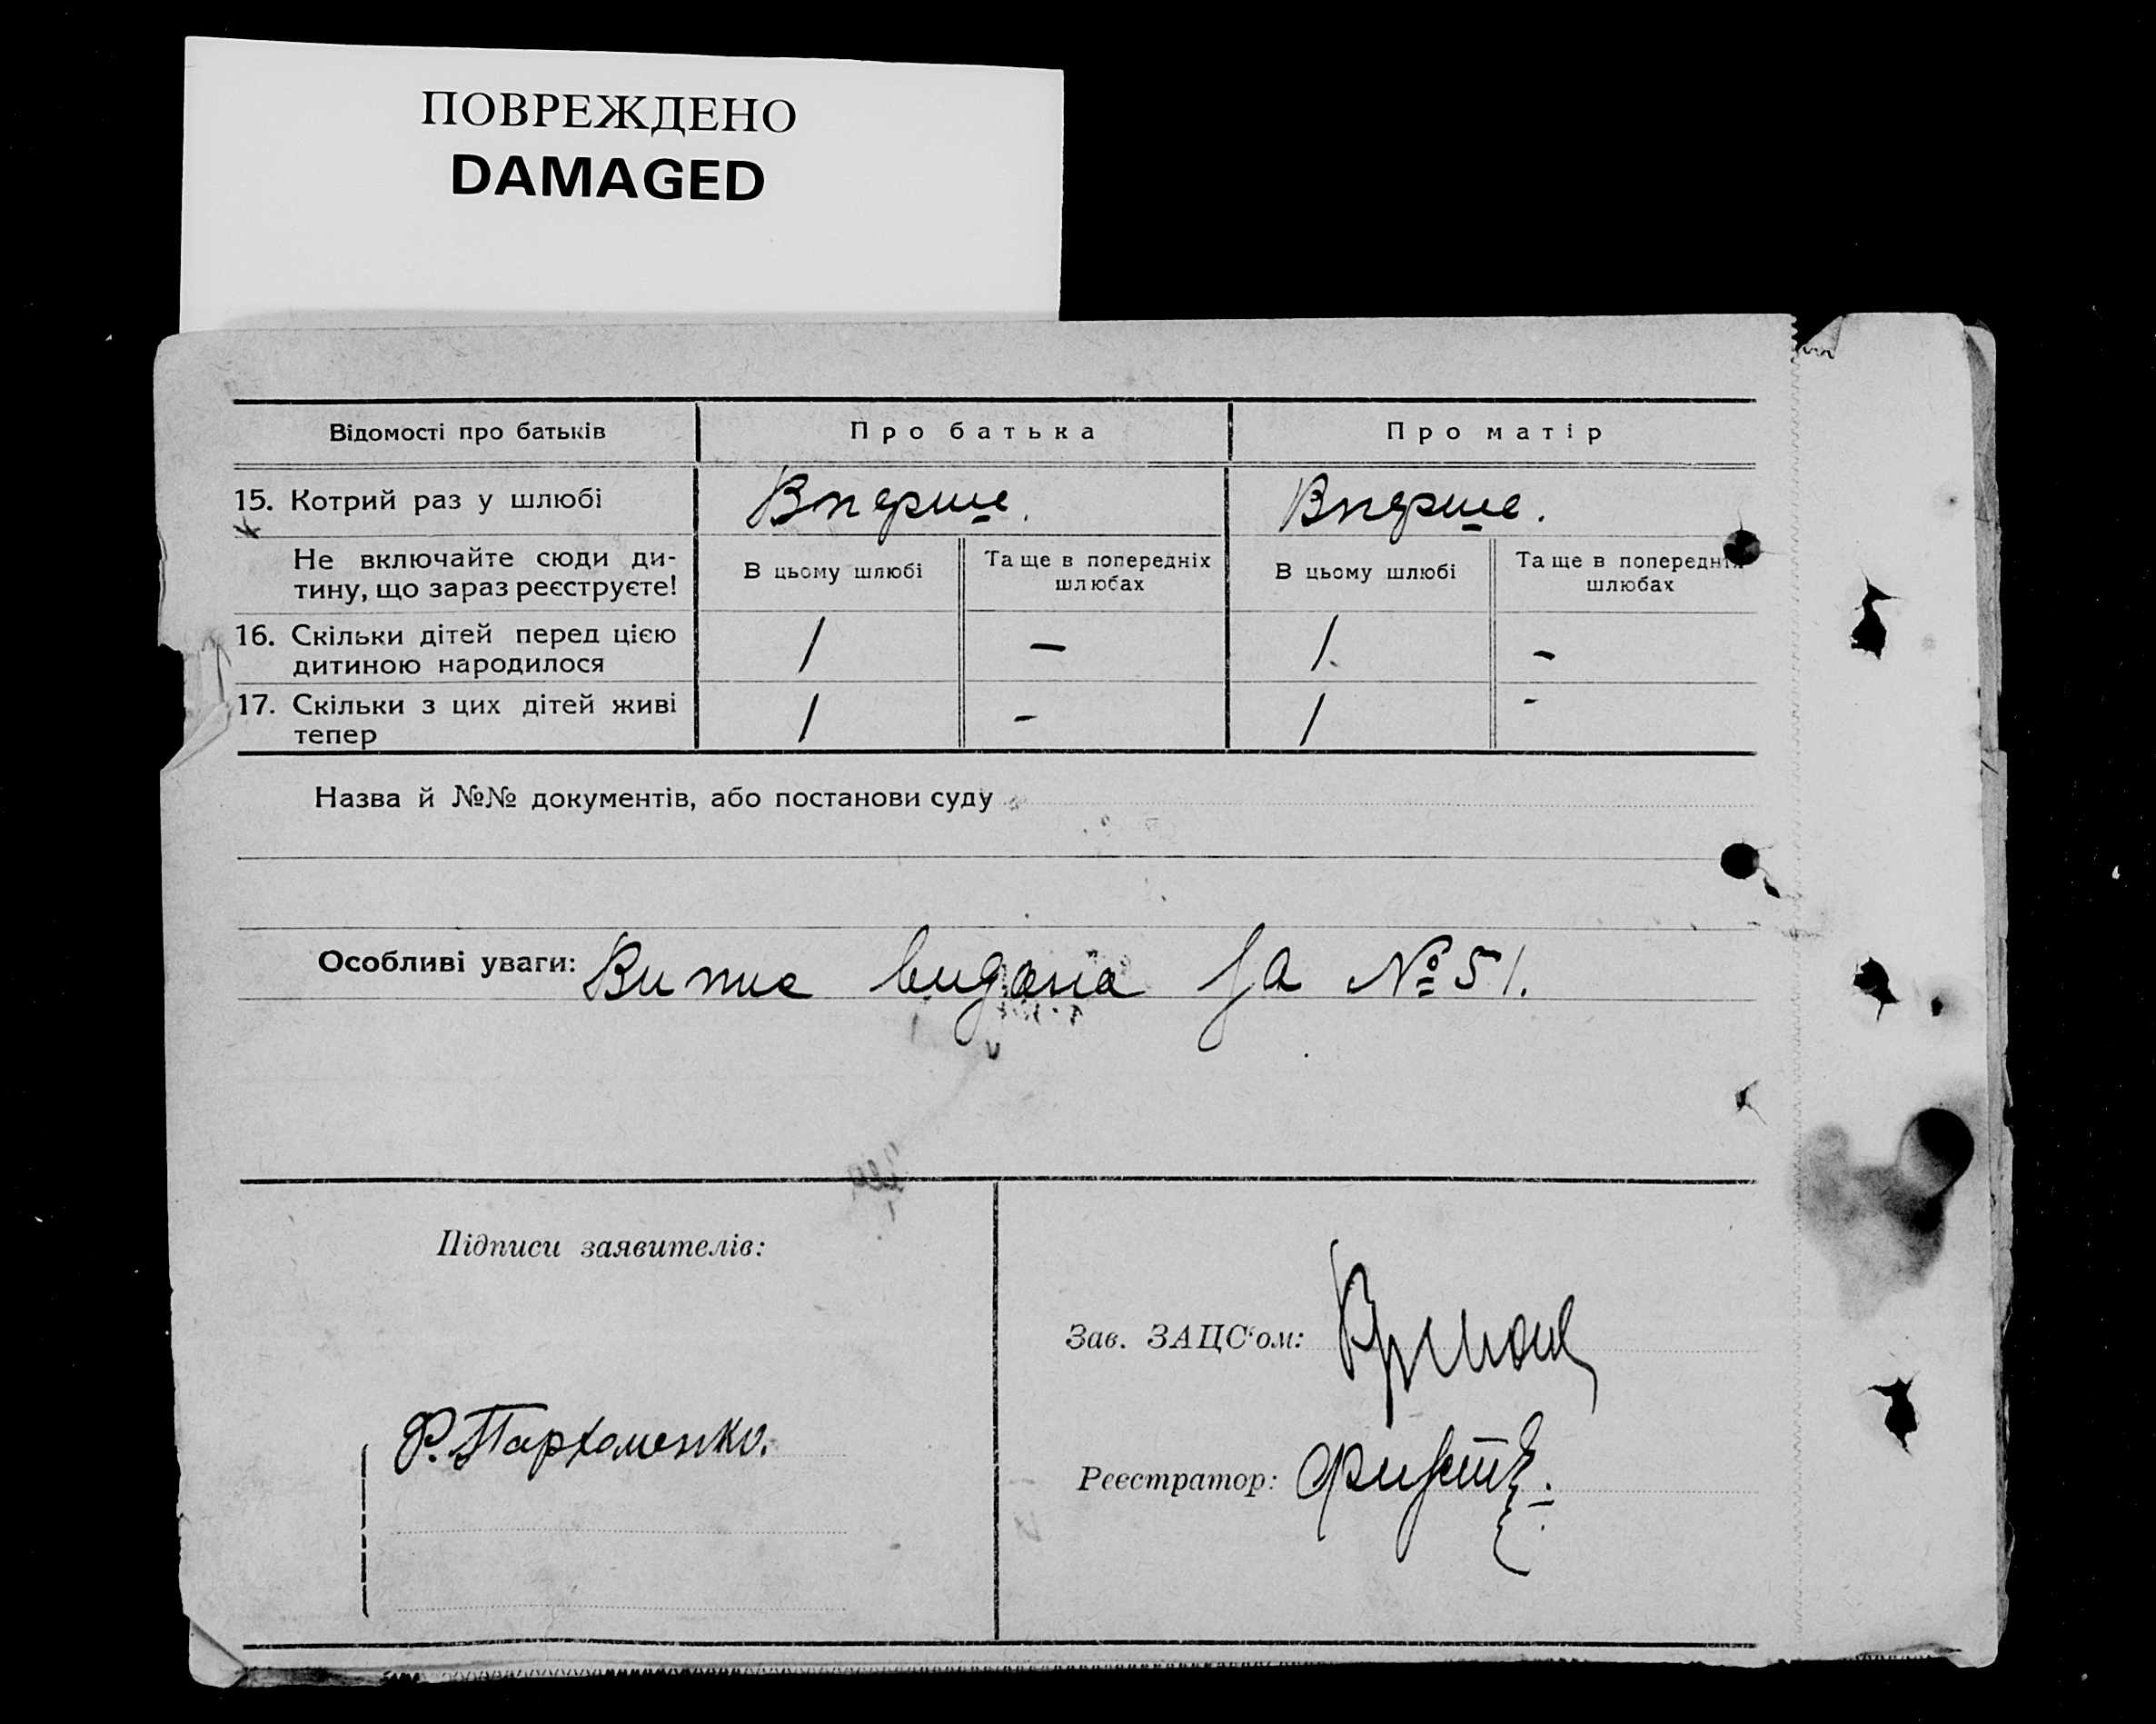 ПОВРЕЖДЕНО
DAMAGED
Відомості про батьків
Про батька
Про матір
15. Котрий раз у шлюбі
Вперше.
Вперше.
Не включайте сюди ди-
тину, що зараз реєструєте!
В цьому шлюбі
Та ще в попередніх
шлюбах
В цьому шлюбі
Та ще в попередніх
шлюбах
16. Скільки дітей перед цією
дитиною народилося
1
—
1.
—
17. Скільки з цих дітей живі
тепер
1
-
1
-
Назва й №№ документів, або постанови суду
Особливі уваги: Випис видана за № 51.
Підписи заявителів:
Ф. Пархоменко.
Зав. ЗАЦС‘ом:
Реєстратор: